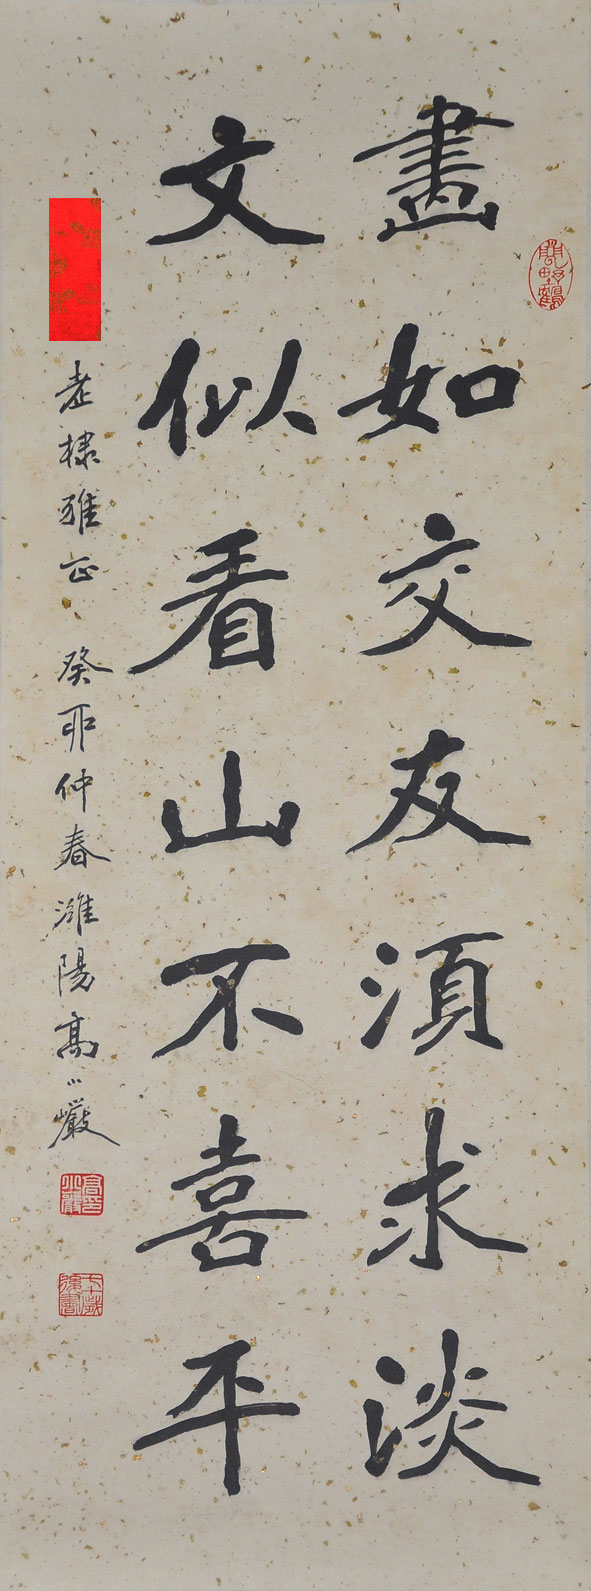 畫如交友須求淡
文似看山不喜平
老棣雅正 癸卯仲春濰陽高小巖